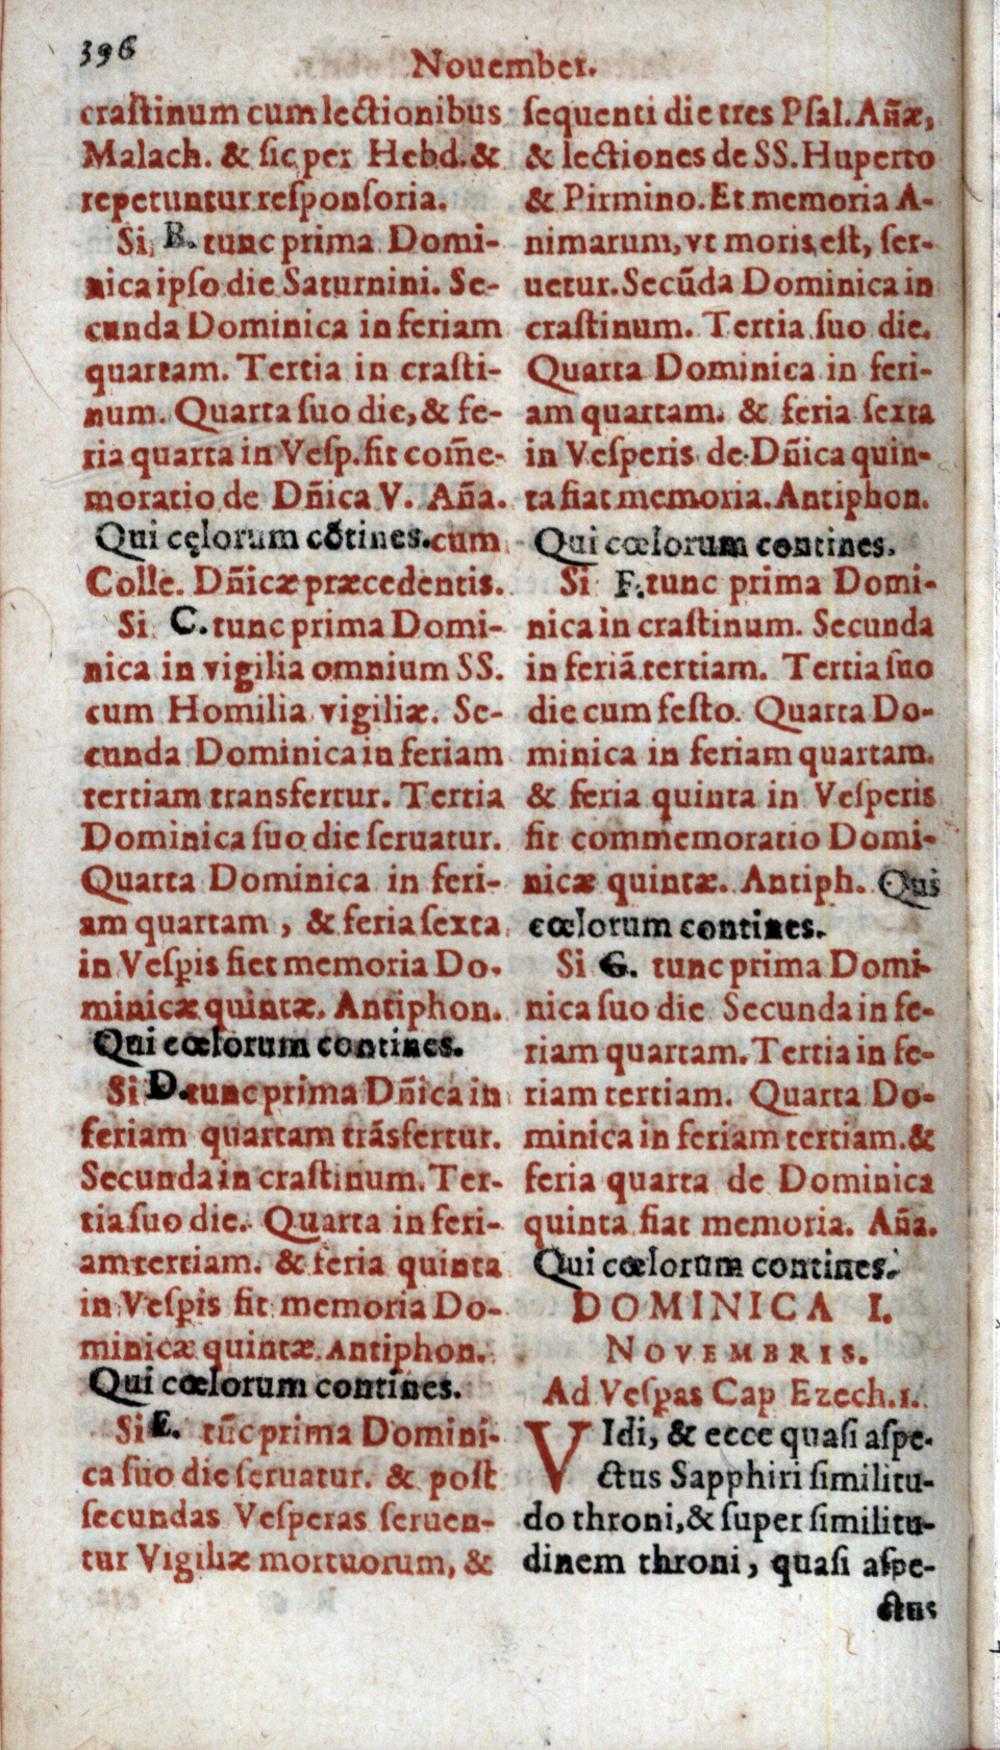 396
Nouember.
craſtinum cum lectionibus
Malach. & ſic per Hebd. &
repetuntur reſponſoria.
Si B. tunc prima Domi-
nica ipſo die Saturnini. Se-
cunda Dominica in feriam
quartam. Tertia in craſti-
num. Quarta ſuo die, & fe-
ria quarta in Veſp. fit com̃e-
moratio de Dñica V. Aña.
Qui cęlorum cõtines. cum
Colle. Dñicæ præcedentis.
Si C. tunc prima Domi-
nica in vigilia omnium SS.
cum Homilia vigiliæ. Se-
cunda Dominica in feriam
tertiam transfertur. Tertia
Dominica ſuo die ſeruatur.
Quarta Dominica in feri-
am quartam, & feria ſexta
in Veſꝑis fiet memoria Do-
minicæ quintæ. Antiphon.
Qui cœlorum contines.
Si D. tunc prima Dñica in
feriam quartam trãsfertur.
Secunda in craſtinum. Ter-
tia ſuo die. Quarta in feri-
am tertiam. & feria quinta
in Veſꝑis fit memoria Do-
minicæ quintæ. Antiphon.
Qui cœlorum contines.
Si E. tũc prima Domini-
ca ſuo die ſeruatur. & poſt
ſecundas Veſperas ſeruen-
tur Vigiliæ mortuorum, &
ſequenti die tres Pſal. Añæ,
& lectiones de SS. Huperto
& Pirmino. Et memoria A-
nimarum, vt moris eſt, ſer-
uetur. Secũda Dominica in
craſtinum. Tertia ſuo die.
Quarta Dominica in feri-
am quartam. & feria ſexta
in Veſperis de Dñica quin-
ta fiat memoria. Antiphon.
Qui cœlorum contines.
Si F. tunc prima Domi-
nica in craſtinum. Secunda
in feriã tertiam. Tertia ſuo
die cum feſto. Quarta Do-
minica in feriam quartam.
& feria quinta in Veſperis
fit commemoratio Domi-
nicæ quintæ. Antiph. Qui
cœlorum contines.
Si G. tunc prima Domi-
nica ſuo die Secunda in fe-
riam quartam. Tertia in fe-
riam tertiam. Quarta Do-
minica in feriam tertiam. &
feria quarta de Dominica
quinta fiat memoria. Aña.
Qui cœlorum contines.
DOMINICA I.
NOVEMBRIS.
Ad Veſꝑas Cap Ezech. 1.
VIdi, & ecce quaſi aſpe-
ctus Sapphiri ſimilitu-
do throni, & ſuper ſimilitu-
dinem throni, quaſi aſpe-
ctus